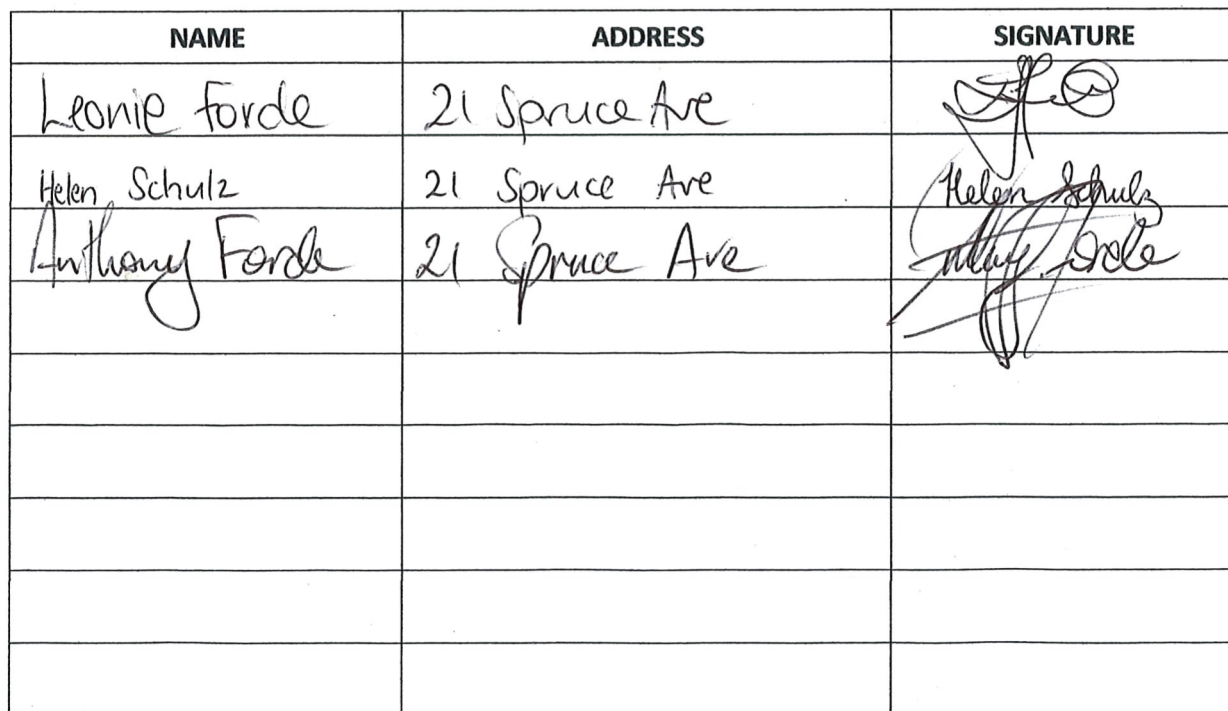 NAME ADDRESS SIGNATURE
Leonie Forde 21 Spruce Ave
Helen Schulz 21 Spruce Ave Helen Schulz
Anthony Forde 21 Spruce Ave Forde